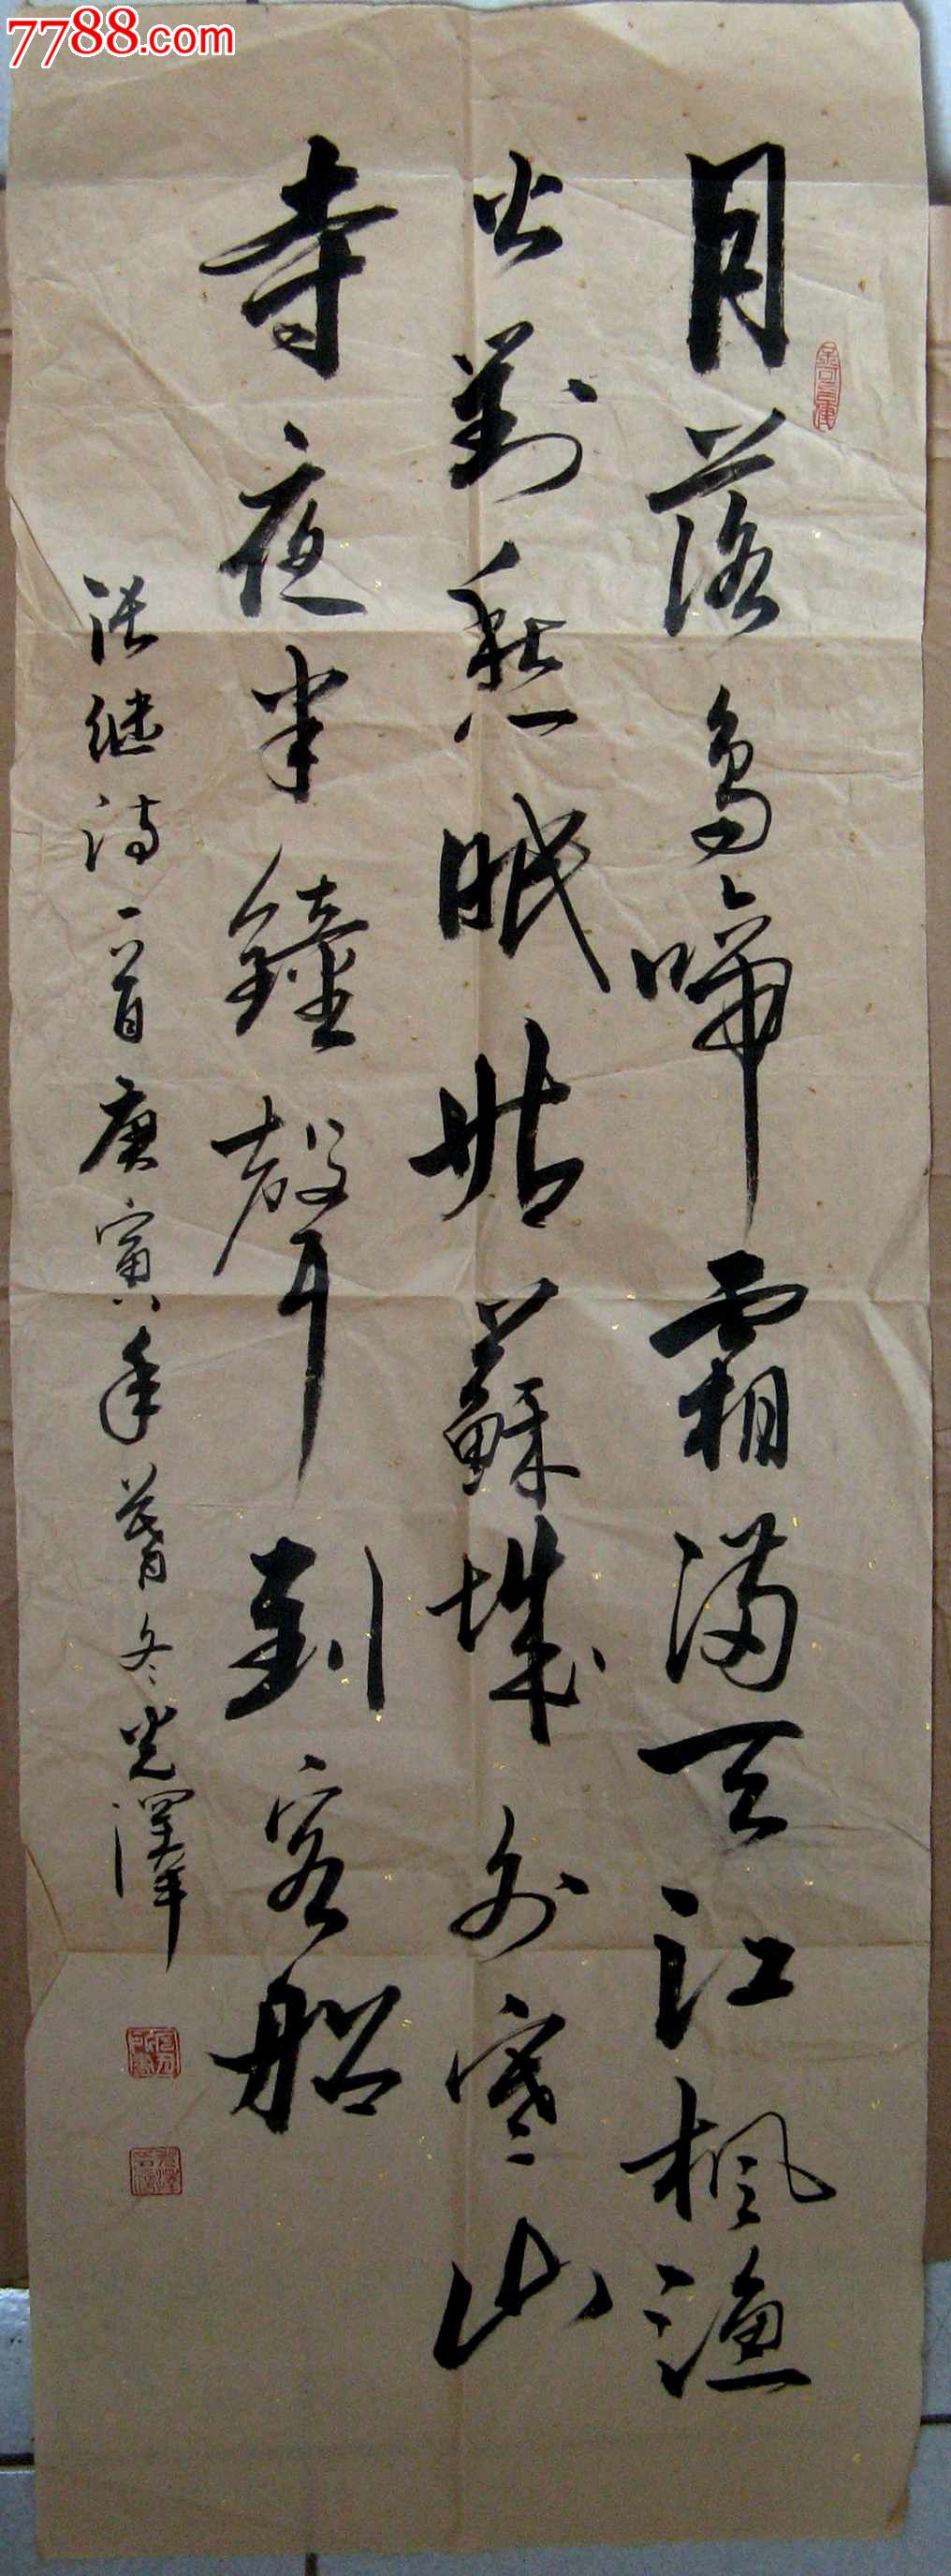 7788.com
月落烏啼霜满天江枫渔
火對愁眠姑蘇城外寒山
寺夜半鐘聲到客船
张继诗一首庚寅年暮冬光澤